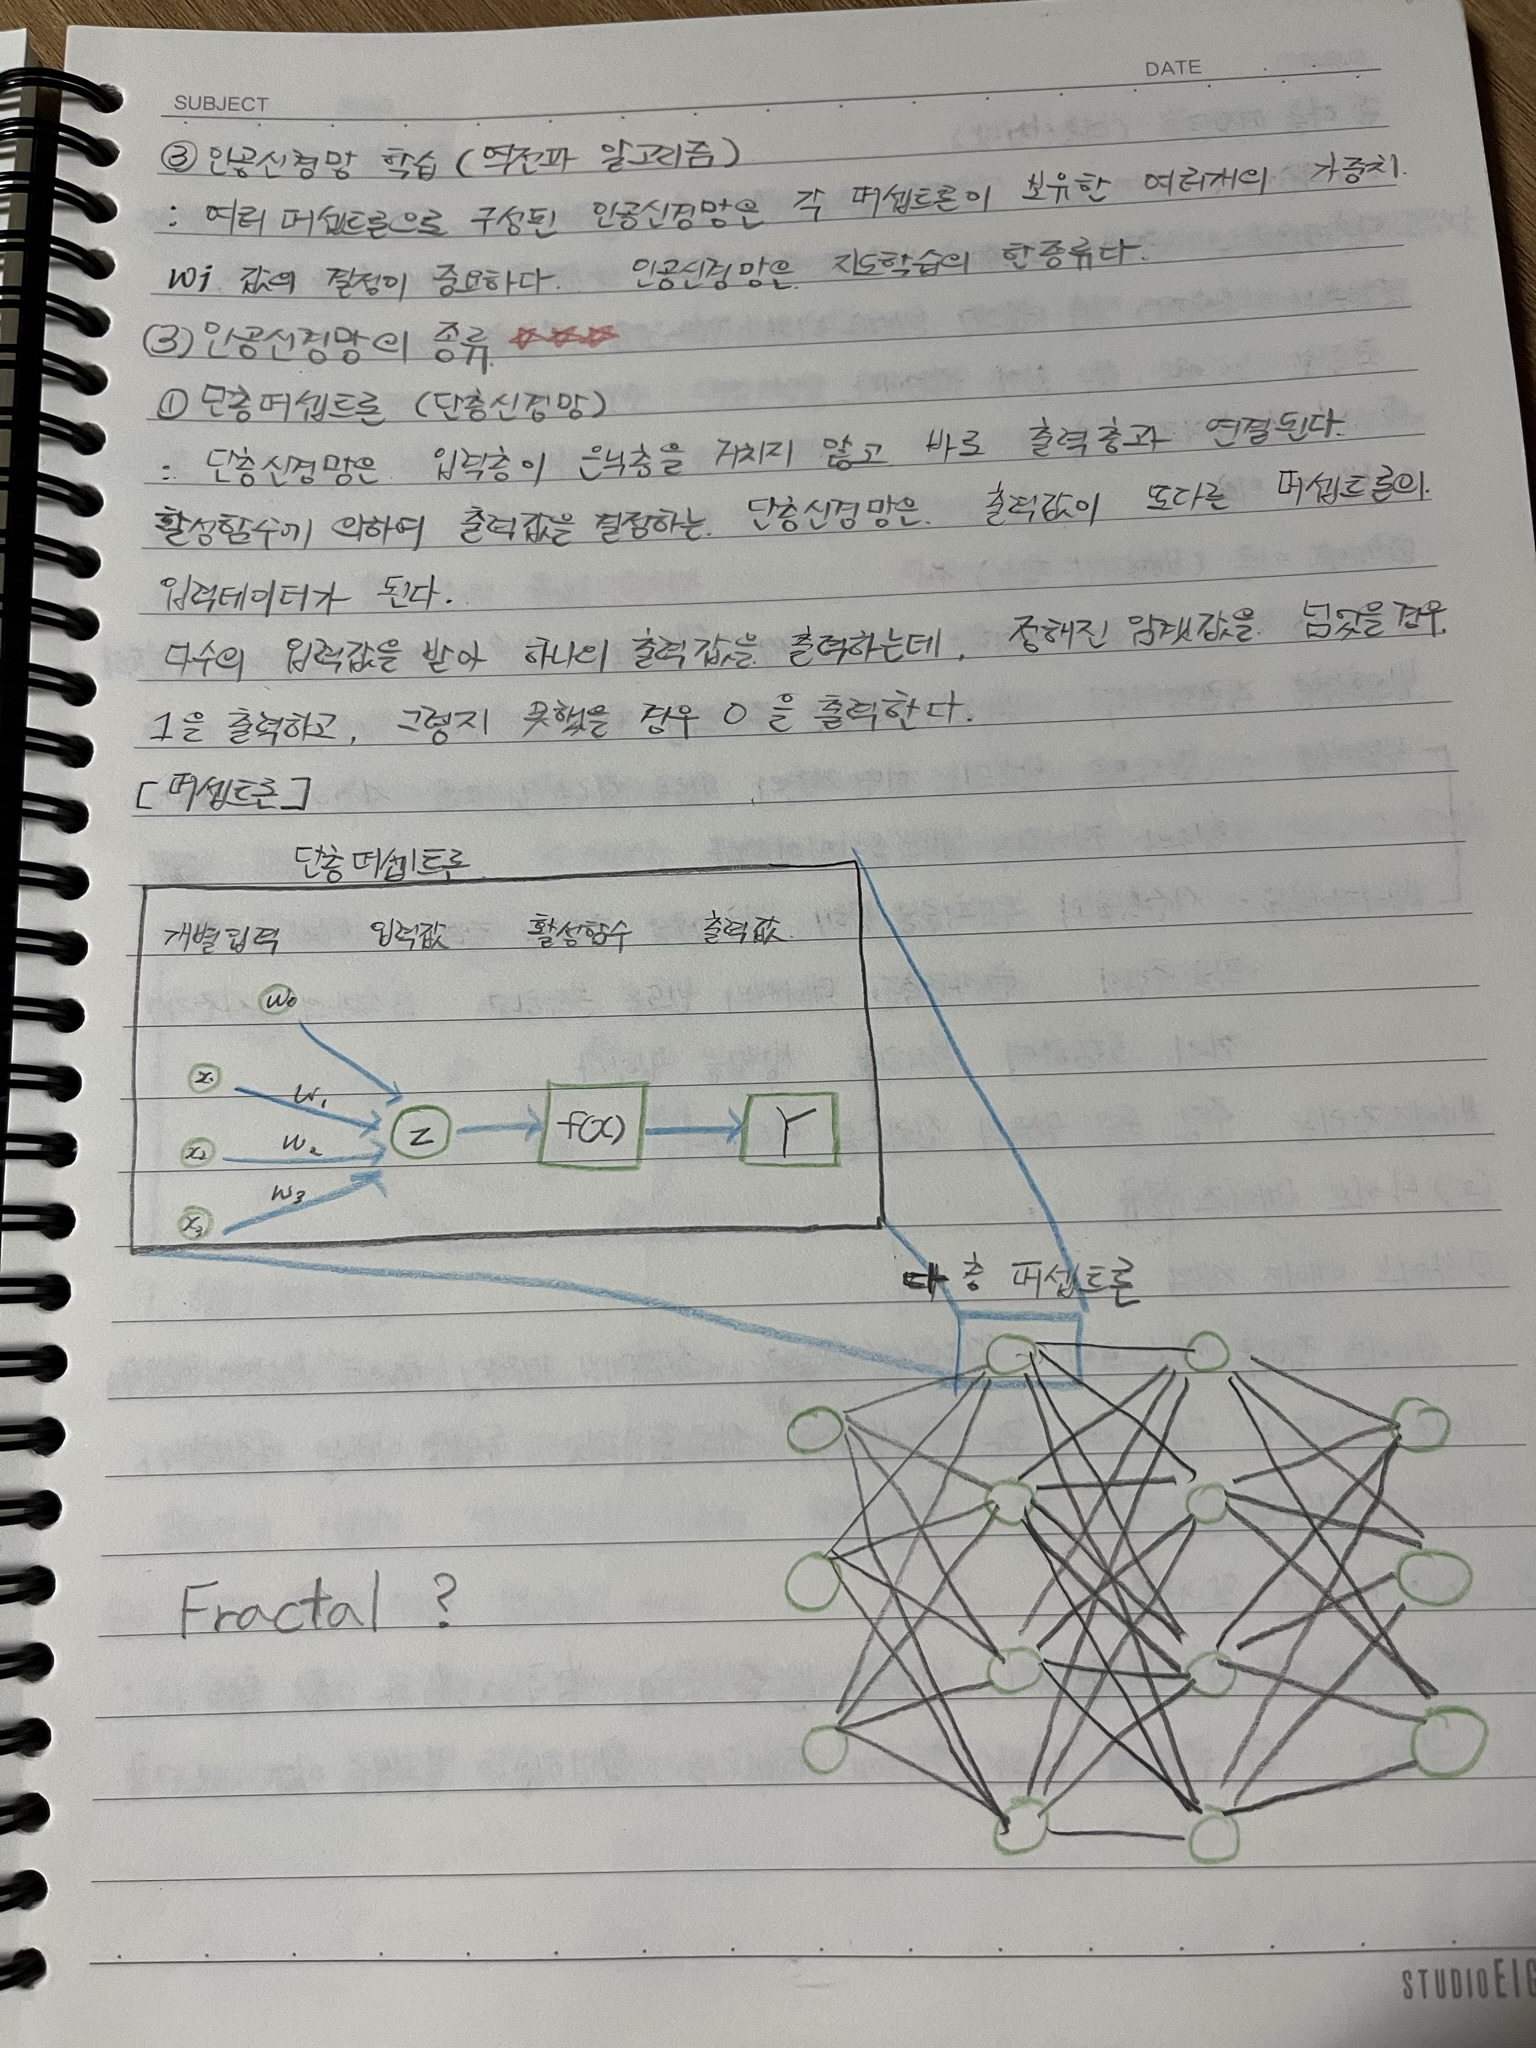 SUBJECT
DATE
③ 인공신경망 학습 (역전파 알고리즘)
: 여러 퍼셉트론으로 구성된 인공신경망은 각 퍼셉트론이 보유한 여러개의 가중치
Wj 값의 결정이 중요하다. 인공신경망은 지도학습의 한종류다.
(3) 인공신경망의 종류
① 단층퍼셉트론 (단층신경망)
: 단층신경망은 입력층이 은닉층을 거치지 않고 바로 출력층과 연결된다.
활성함수에 의하여 출력값을 결정하는 단층신경망은 출력값이 또다른 퍼셉트론의
입력데이터가 된다.
다수의 입력값을 받아 하나의 출력값을 출력하는데, 정해진 임곗값을 넘었을 경우
1을 출력하고, 그렇지 못했을 경우 0을 출력한다.
[퍼셉트론]
단층퍼셉트론
개별입력 입력값 활성함수 출력값
W₀
x₁ W₁
x₂ W₂ Z f(x) Y
x₃ W₃
다층 퍼셉트론
Fractal ?